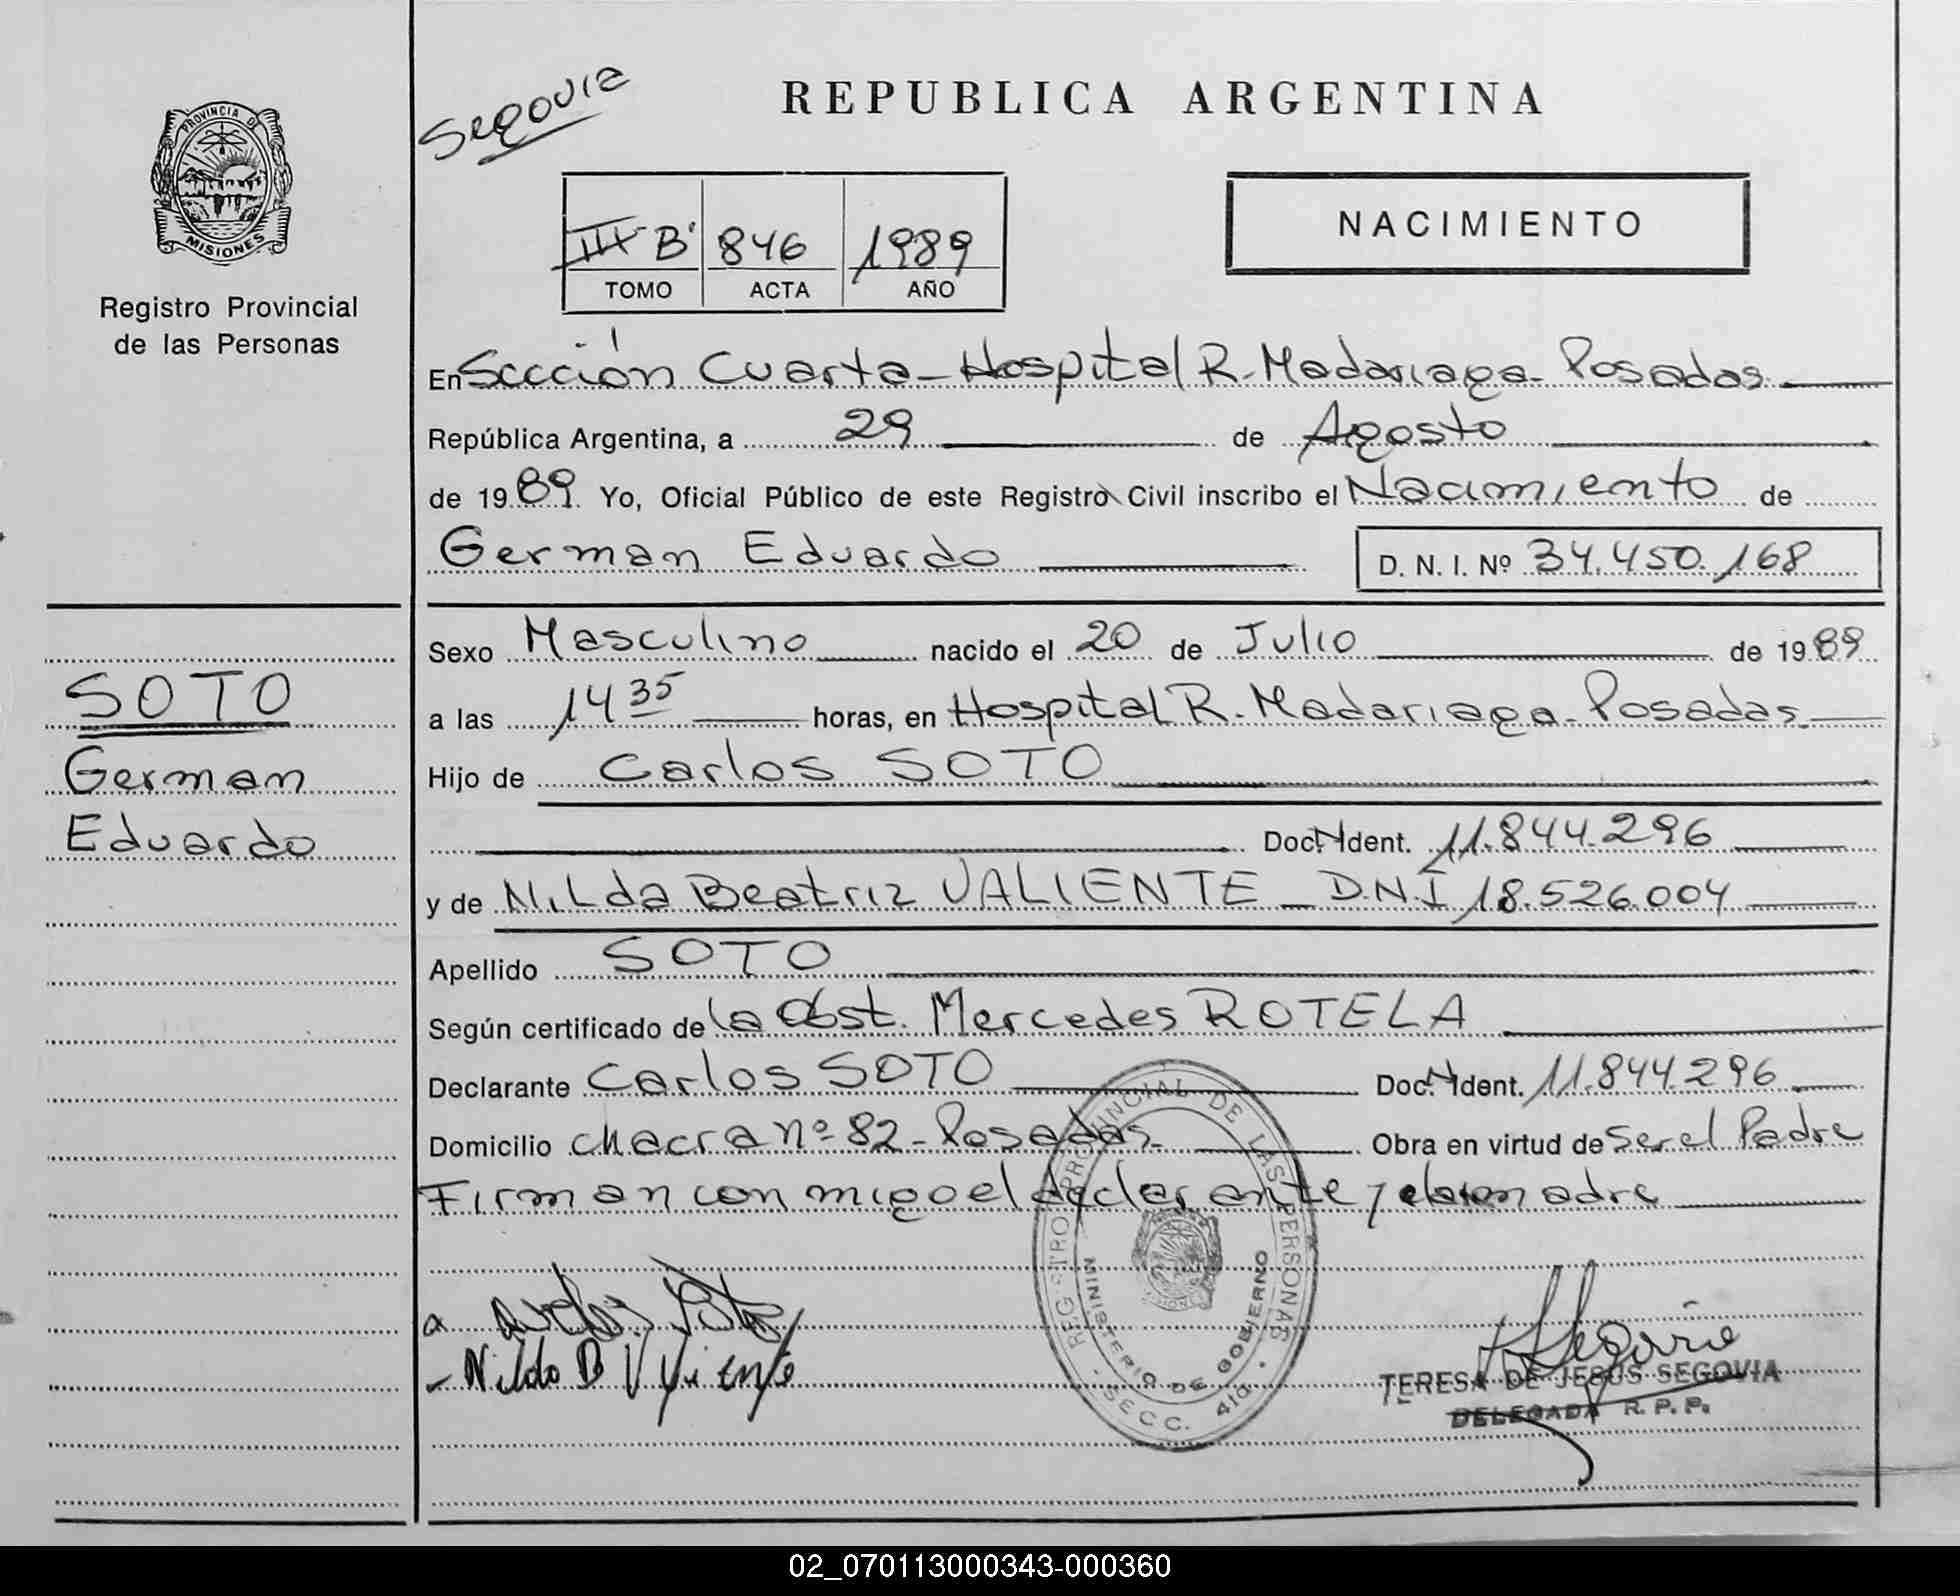 PROVINCIA DE
MISIONES
Registro Provincial
de las Personas
SOTO
German
Eduardo
Segovia
REPUBLICA ARGENTINA
NACIMIENTO
B 846 1989
TOMO ACTA AÑO
En Sección Cuarta - Hospital R. Madariaga - Posadas
República Argentina, a 29 de Agosto
de 1989. Yo, Oficial Público de este Registro Civil inscribo el Nacimiento de
German Eduardo D. N. I. Nº 34.450.168
Sexo Masculino nacido el 20 de Julio de 1989
a las 14 35 horas, en Hospital R. Madariaga - Posadas
Hijo de Carlos SOTO
Doc. Ident. 11.844.296
y de Nilda Beatriz VALIENTE - D.N.I 18.526.004
Apellido SOTO
Según certificado de la Obst. Mercedes ROTELA
Declarante Carlos SOTO Doc. Ident. 11.844.296
Domicilio chacra nº 82 - Posadas Obra en virtud de ser el Padre
Firman conmigo el declarante y la madre
REGISTRO PROVINCIAL DE LAS PERSONAS
MISIONES
MINISTERIO DE GOBIERNO
SECC. 4ta.
Segovia
TERESA DE JESUS SEGOVIA
DELEGADA R. P. P.
02_070113000343-000360